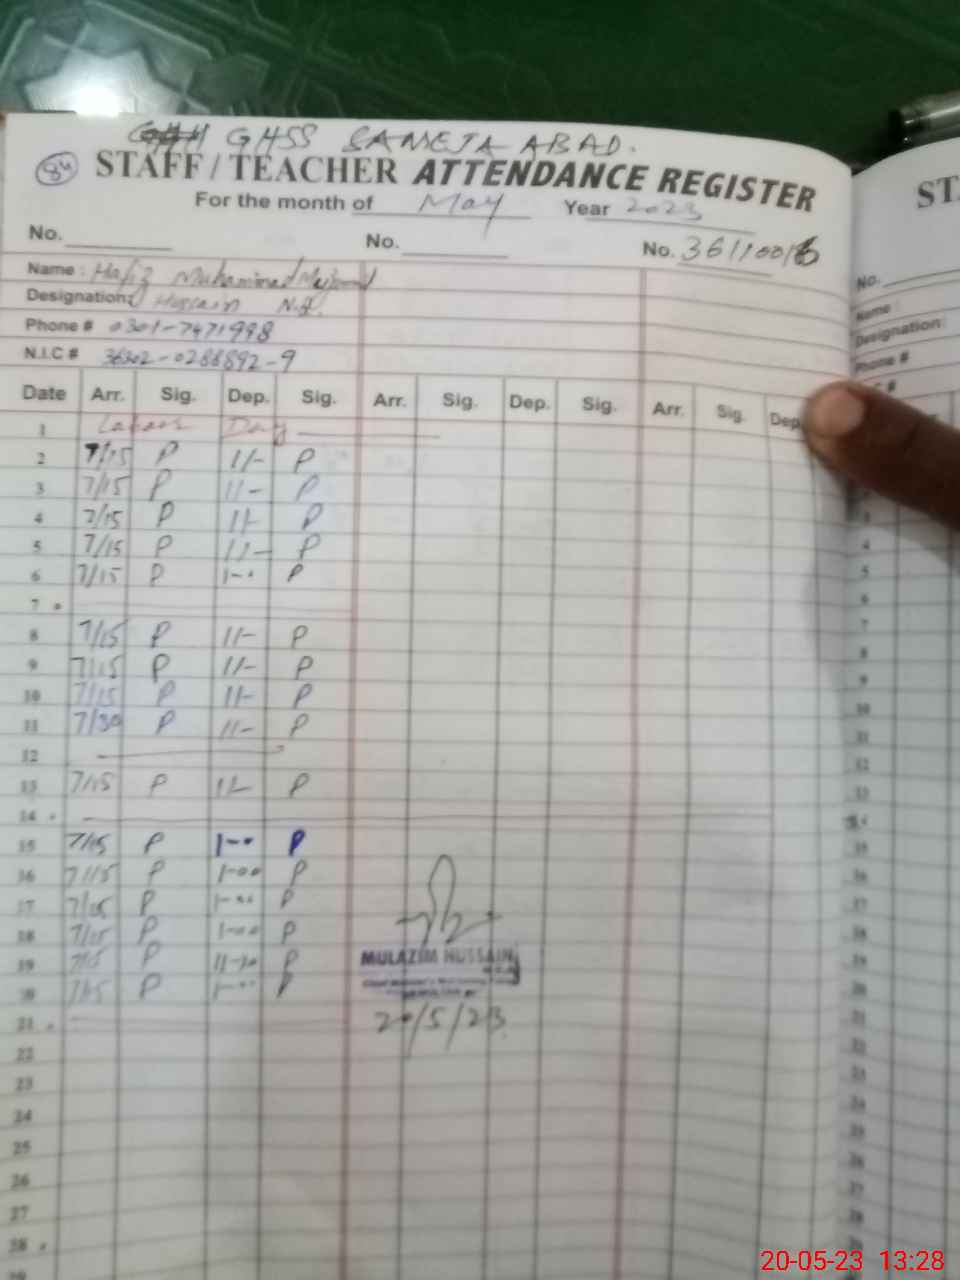 GHSS SAMEJA ABAD.
84 STAFF / TEACHER ATTENDANCE REGISTER
For the month of May Year 2023
No. No. No. 36110016
Name: Hafiz Muhammad
Designation: Hussain N.Q.
Phone # 0301-7471998
N.I.C # 36302-0288892-9
Date Arr. Sig. Dep. Sig. Arr. Sig. Dep. Sig. Arr. Sig. Dep.
1 Labour Day
2 7/15 P 11- P
3 7/15 P 11- P
4 7/15 P 11- P
5 7/15 P 11- P
6 7/15 P 1-- P
7
8 7/15 P 11- P
9 7/15 P 11- P
10 7/15 P 11- P
11 7/30 P 11- P
12
13 7/15 P 11- P
14
15 7/15 P 1-00 P
16 7/15 P 1-00 P
17 7/15 P 1-00 P
18 7/15 P 1-00 P
19 7/15 P 11-30 P
20 7/15 P 1-00 P
MULAZIM HUSSAIN
20/5/23
21
22
23
24
25
26
27
28
29
ST
No.
Name:
Designation:
Phone #
20-05-23 13:28